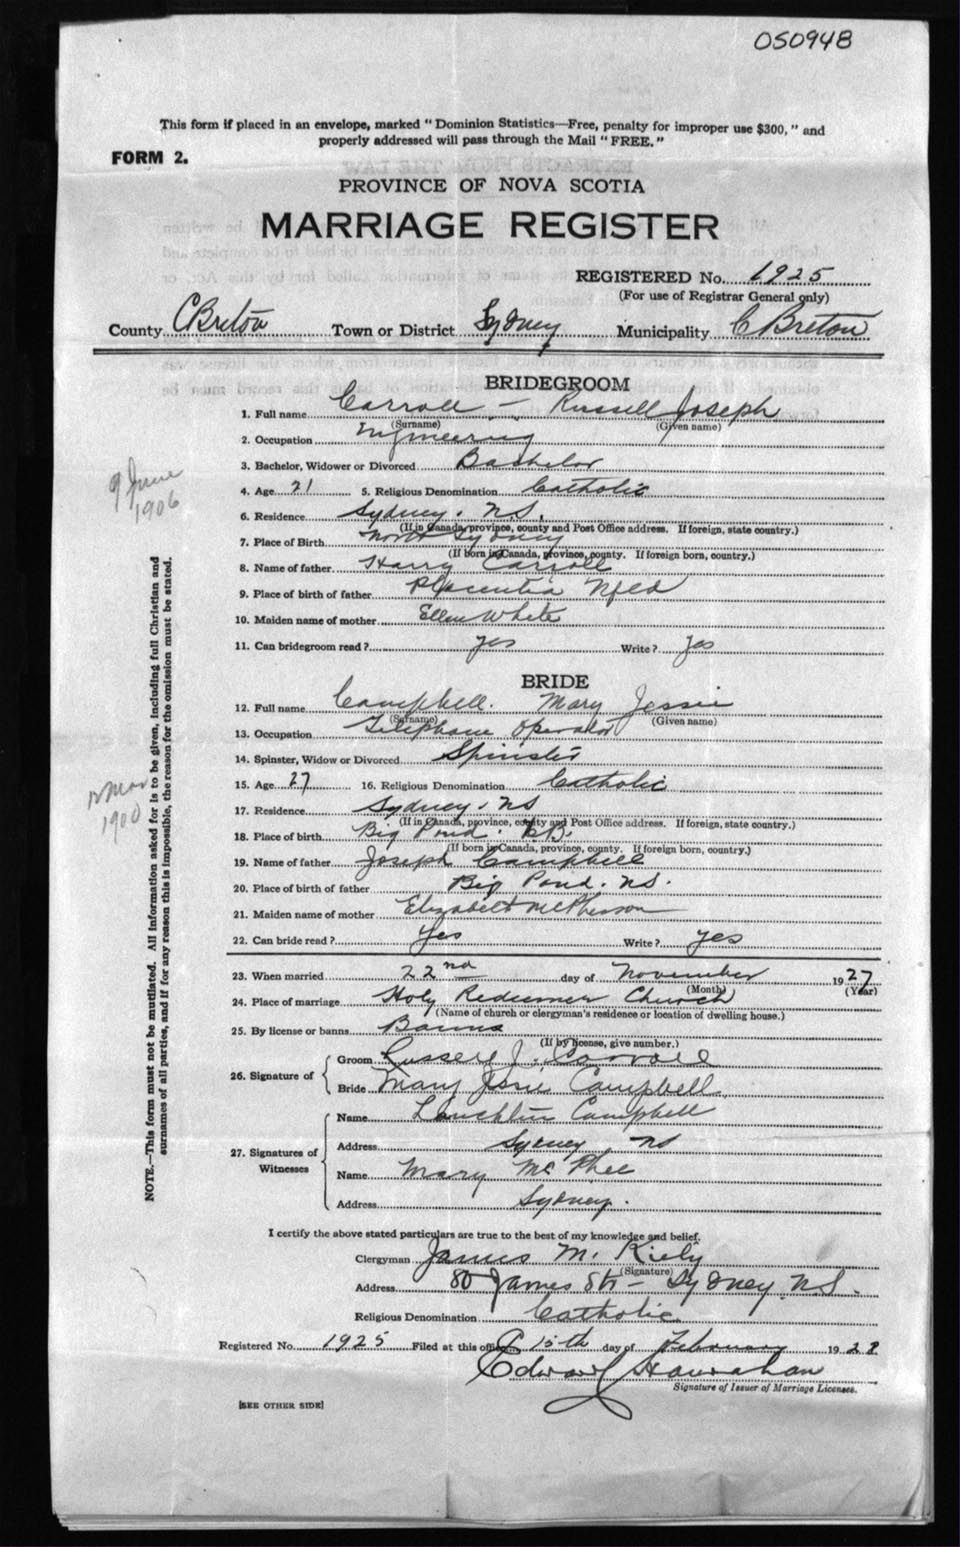 050948
This form if placed in an envelope, marked " Dominion Statistics—Free, penalty for improper use $300, " and
properly addressed will pass through the Mail " FREE. "
FORM 2.
PROVINCE OF NOVA SCOTIA
MARRIAGE REGISTER
REGISTERED No. 1925
(For use of Registrar General only)
County C Breton Town or District Sydney Municipality C Breton
BRIDEGROOM
1. Full name Carroll — Russell Joseph
(Surname) (Given name)
2. Occupation
3. Bachelor, Widower or Divorced Bachelor
4. Age 21 5. Religious Denomination Catholic
6. Residence Sydney. N.S.
(If in Canada, province, county and Post Office address. If foreign, state country.)
7. Place of Birth North Sydney
(If born in Canada, province, county. If foreign born, country.)
8. Name of father Harry Carroll
9. Place of birth of father Placentia Nfld
10. Maiden name of mother Ellen White
11. Can bridegroom read? yes Write? yes
9 June
1906
BRIDE
12. Full name Campbell. Mary Jessie
(Surname) (Given name)
13. Occupation Telephone Operator
14. Spinster, Widow or Divorced Spinster
15. Age 27 16. Religious Denomination Catholic
17. Residence Sydney. NS
(If in Canada, province, county and Post Office address. If foreign, state country.)
18. Place of birth Big Pond. C.B.
(If born in Canada, province, county. If foreign born, country.)
19. Name of father Joseph Campbell
20. Place of birth of father Big Pond. NS.
21. Maiden name of mother Elizabeth McPherson
22. Can bride read? Yes Write? yes
1900
23. When married 22nd day of November 1927
(Month) (Year)
24. Place of marriage Holy Redeemer Church
(Name of church or clergyman's residence or location of dwelling house.)
25. By license or banns Banns
(If by license, give number.)
26. Signature of Groom Russell J. Carroll
Bride Mary Jessie Campbell
27. Signatures of Witnesses Name Lauchlin Campbell
Address Sydney NS
Name Mary McPhee
Address Sydney.
I certify the above stated particulars are true to the best of my knowledge and belief.
Clergyman James M. Kiely
(Signature)
Address 80 James St — Sydney N.S.
Religious Denomination Catholic
Registered No. 1925 Filed at this office 15th day of February 1928
Edward Hanrahan
Signature of Issuer of Marriage Licenses.
[SEE OTHER SIDE]
NOTE.—This form must not be mutilated. All information asked for is to be given, including full Christian and
surnames of all parties, and if for any reason this is impossible, the reason for the omission must be stated.